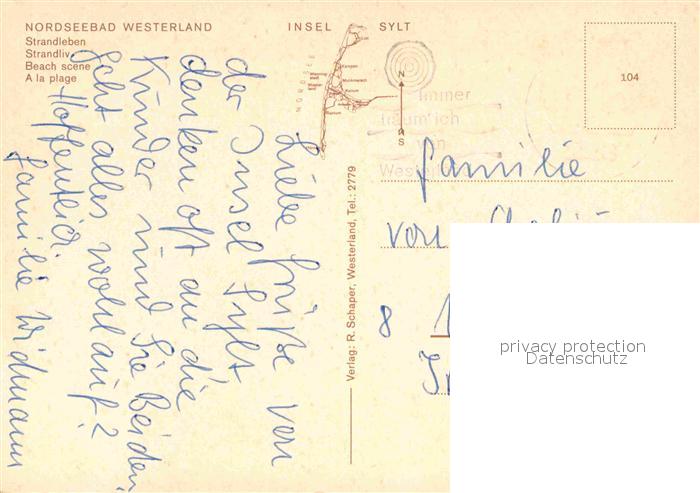 NORDSEEBAD WESTERLAND
Strandleben
Strandliv
Beach scene
A la plage
INSEL SYLT
NORDSEE
List
Kampen
N
S
104
Immer
träum ich
von
Westerland
Liebe Grüße von
der Insel Sylt
denken oft an die
Kinder und Sie Beiden
Geht alles wohlauf?
Hoffentlich.
Familie Widmann
Verlag: R. Schaper, Westerland, Tel.: 2779
Familie
von
8
privacy protection
Datenschutz